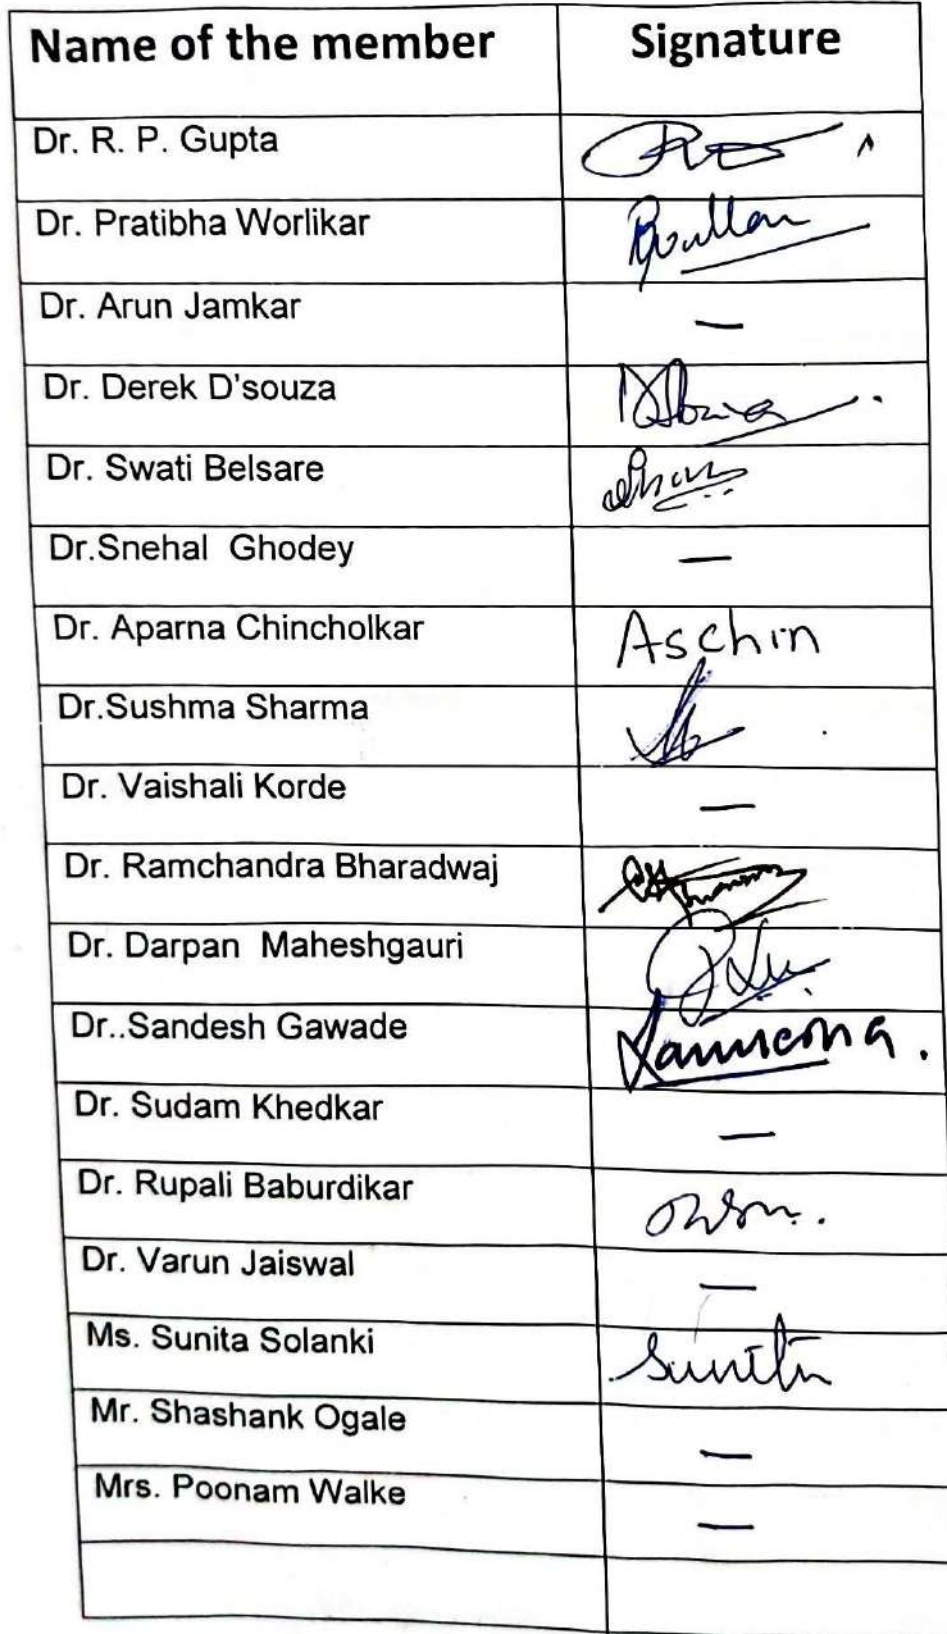 Name of the member Signature
Dr. R. P. Gupta
Dr. Pratibha Worlikar
Dr. Arun Jamkar —
Dr. Derek D'souza
Dr. Swati Belsare
Dr.Snehal Ghodey —
Dr. Aparna Chincholkar Aschin
Dr.Sushma Sharma
Dr. Vaishali Korde —
Dr. Ramchandra Bharadwaj
Dr. Darpan Maheshgauri
Dr..Sandesh Gawade
Dr. Sudam Khedkar —
Dr. Rupali Baburdikar
Dr. Varun Jaiswal —
Ms. Sunita Solanki Sunita
Mr. Shashank Ogale —
Mrs. Poonam Walke —